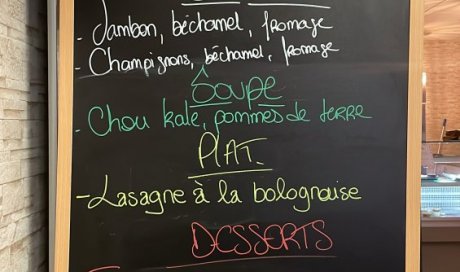 - Jambon, béchamel, fromage
- Champignons, béchamel, fromage
Soupe
- Chou kale, pommes de terre
PLAT.
- Lasagne à la bolognaise
DESSERTS